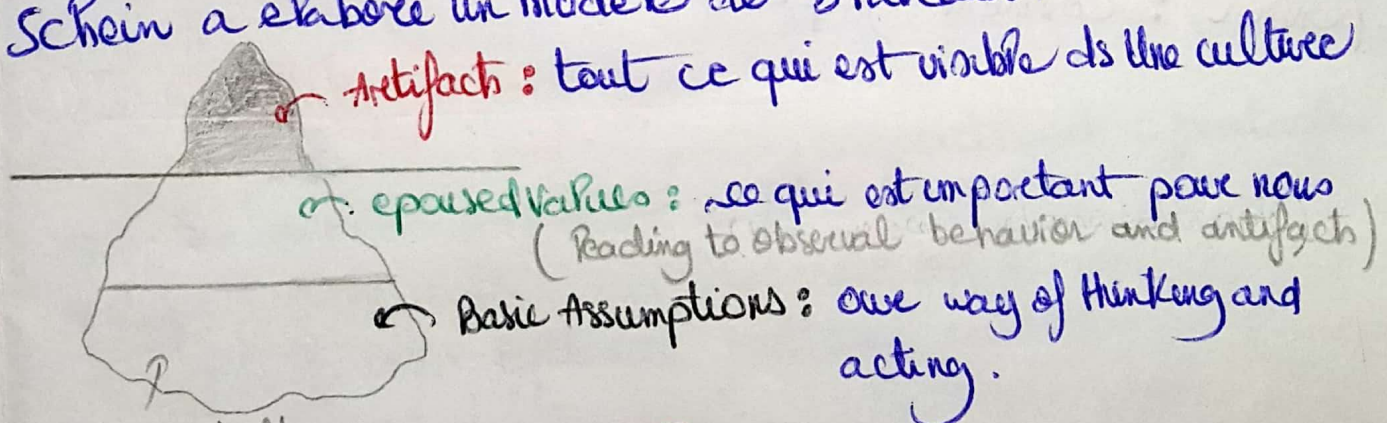 Schein a elaboré un modèle de
Artifacts : tout ce qui est visible ds Une culture
epoused values : ce qui est important pour nous
(leading to observal behavior and antifacts)
Basic Assumptions : our way of thinking and
acting.